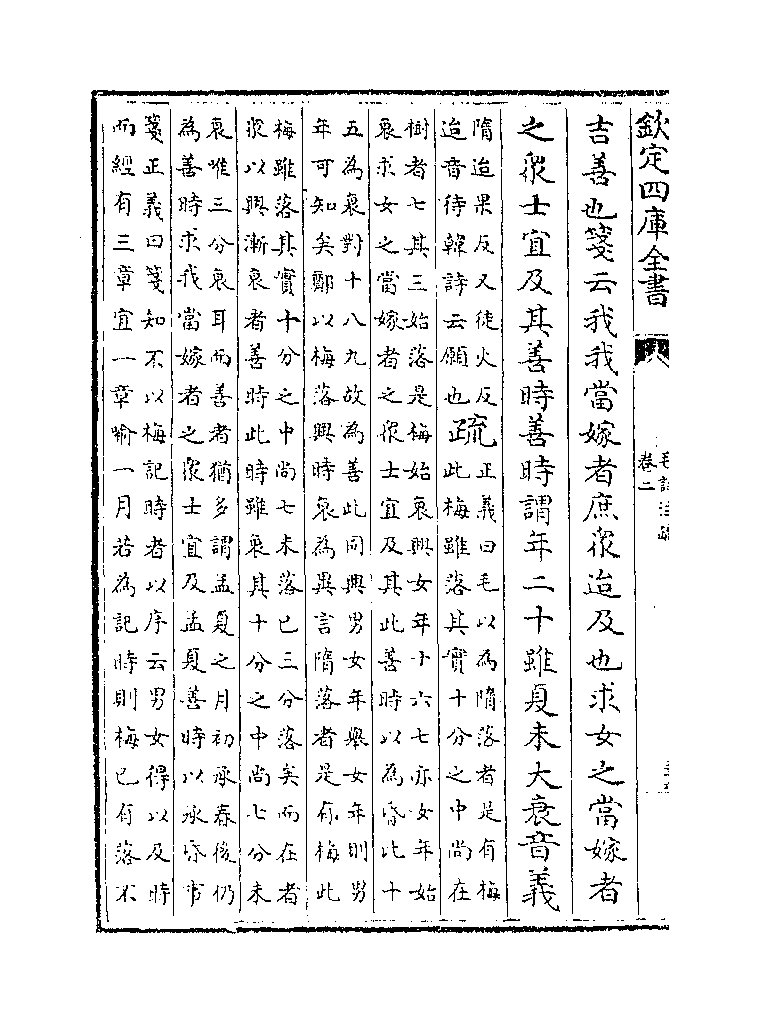 欽定四庫全書
卷二
吉善也箋云我我當嫁者庶衆迨及也求女之當嫁者
之衆士宜及其善時善時謂年二十雖夏未大衰音義
隋迨果反又徒火反
迨音待韓詩云願也
疏
正義曰毛以為隋落者是有梅
此梅雖落其實十分之中尚在
樹者七其三始落是梅始衰興女年十六七亦女年始
衰求女之當嫁者之衆士宜及其此善時以為昏比十
五為衰對十八九故為善此同興男女年舉女年則男
年可知矣鄭以梅落興時衰為異言隋落者是有梅此
梅雖落其實十分之中尚七未落已三分落矣而在者
衆以興漸衰者善時此時雖衰其十分之中尚七分未
衰唯三分衰耳而善者猶多謂孟夏之月初承春後仍
為善時求我當嫁者之衆士宜及孟夏善時以承昏事
箋正義曰箋知不以梅記時者以序云男女得以及時
而經有三章宜一章喻一月若為記時則梅已有落不